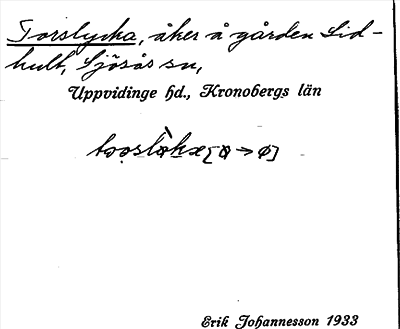 Torslycka, åker å gården Lid-
hult, Sjösås sn,
Uppvidinge hd., Kronobergs län
Erik Johannesson 1933